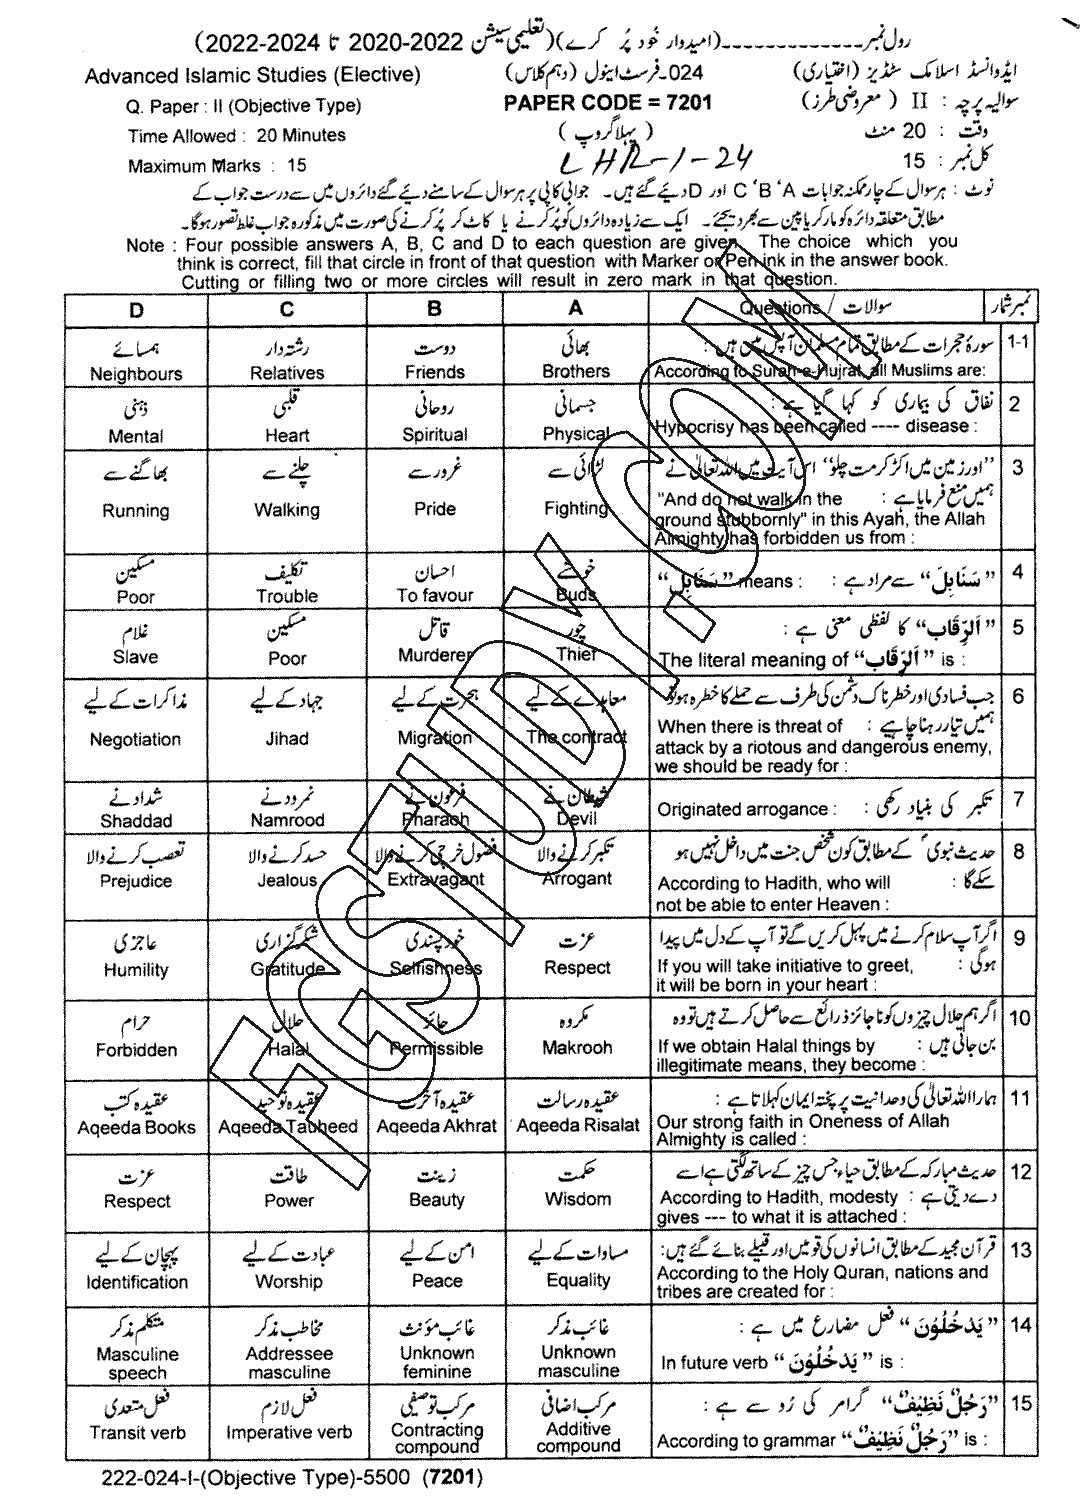 رول نمبر ـ ـ ـ ـ ـ ـ ـ ـ ـ ـ ـ ـ ـ (امیدوار خود پُر کرے) (تعلیمی سیشن 2022-2020 تا 2024-2022)
ایڈوانسڈ اسلامک سٹڈیز (اختیاری) 024۔فرسٹ اینول (دہم کلاس) Advanced Islamic Studies (Elective)
سوالیہ پرچہ : II ( معروضی طرز) PAPER CODE = 7201 Q. Paper : II (Objective Type)
وقت : 20 منٹ ( پہلا گروپ ) Time Allowed : 20 Minutes
کل نمبر : 15 LHR-1-24 Maximum Marks : 15
نوٹ : ہر سوال کے چار ممکنہ جوابات A ‘B ‘C اور D دیئے گئے ہیں۔ جوابی کاپی پر ہر سوال کے سامنے دیئے گئے دائروں میں سے درست جواب کے
مطابق متعلقہ دائرہ کو مارکر یا پین سے بھر دیجئے۔ ایک سے زیادہ دائروں کو پُر کرنے یا کاٹ کر پُر کرنے کی صورت میں مذکورہ جواب غلط تصور ہوگا۔
Note : Four possible answers A, B, C and D to each question are given. The choice which you
think is correct, fill that circle in front of that question with Marker or Pen ink in the answer book.
Cutting or filling two or more circles will result in zero mark in that question.
D C B A Questions / سوالات نمبر شمار
ہمسائے رشتہ دار دوست بھائی سورۂ حجرات کے مطابق تمام مسلمان آپس میں ہیں : 1-1
Neighbours Relatives Friends Brothers According to Surah-e-Hujrat, all Muslims are:
ذہنی قلبی روحانی جسمانی نفاق کی بیماری کو کہا گیا ہے : 2
Mental Heart Spiritual Physical Hypocrisy has been called ---- disease :
بھاگنے سے چلنے سے غرور سے لڑائی سے ’’اور زمین میں اکڑ کر مت چلو‘‘ اس آیت میں اللہ تعالیٰ نے 3
ہمیں منع فرمایا ہے : "And do not walk in the
Running Walking Pride Fighting ground stubbornly" in this Ayah, the Allah
Almighty has forbidden us from :
مسکین تکلیف احسان خوشے ’’ سَنَابِلَ ‘‘ سے مراد ہے : “ سَنَابِلَ ” means : 4
Poor Trouble To favour Buds
غلام مسکین قاتل چور ’’ اَلرِّقَاب ‘‘ کا لفظی معنی ہے : 5
Slave Poor Murderer Thief The literal meaning of “ اَلرِّقَاب ” is :
مذاکرات کے لیے جہاد کے لیے ہجرت کے لیے معاہدے کے لیے جب فسادی اور خطرناک دشمن کی طرف سے حملے کا خطرہ ہو تو 6
ہمیں تیار رہنا چاہیے : When there is threat of
Negotiation Jihad Migration The contract attack by a riotous and dangerous enemy,
we should be ready for :
شداد نے نمرود نے فرعون نے شیطان نے تکبر کی بنیاد رکھی : Originated arrogance : 7
Shaddad Namrood Pharaoh Devil
تعصب کرنے والا حسد کرنے والا فضول خرچی کرنے والا تکبر کرنے والا حدیث نبویؐ کے مطابق کون شخص جنت میں داخل نہیں ہو 8
Prejudice Jealous Extravagant Arrogant سکے گا : According to Hadith, who will
not be able to enter Heaven :
عاجزی شکر گزاری خود پسندی عزت اگر آپ سلام کرنے میں پہل کریں گے تو آپ کے دل میں پیدا 9
Humility Gratitude Selfishness Respect ہوگی : If you will take initiative to greet,
it will be born in your heart :
حرام حلال جائز مکروہ اگر ہم حلال چیزوں کو ناجائز ذرائع سے حاصل کرتے ہیں تو وہ 10
Forbidden Halal Permissible Makrooh بن جاتی ہیں : If we obtain Halal things by
illegitimate means, they become :
عقیدہ کتب عقیدہ توحید عقیدہ آخرت عقیدہ رسالت ہمارا اللہ تعالیٰ کی وحدانیت پر پختہ ایمان کہلاتا ہے : 11
Aqeeda Books Aqeeda Tauheed Aqeeda Akhrat Aqeeda Risalat Our strong faith in Oneness of Allah
Almighty is called :
عزت طاقت زینت حکمت حدیث مبارکہ کے مطابق حیاء جس چیز کے ساتھ لگتی ہے اسے 12
Respect Power Beauty Wisdom دے دیتی ہے : According to Hadith, modesty
gives --- to what it is attached :
پہچان کے لیے عبادت کے لیے امن کے لیے مساوات کے لیے قرآن مجید کے مطابق انسانوں کی قومیں اور قبیلے بنائے گئے ہیں: 13
Identification Worship Peace Equality According to the Holy Quran, nations and
tribes are created for :
متکلم مذکر مخاطب مذکر غائب مؤنث غائب مذکر ’’ یَدْخُلُوْنَ ‘‘ فعل مضارع میں ہے : 14
Masculine Addressee Unknown Unknown In future verb “ یَدْخُلُوْنَ ” is :
speech masculine feminine masculine
فعل متعدی فعل لازم مرکب توصیفی مرکب اضافی ’’رَجُلٌ نَظِیْفٌ‘‘ گرامر کی رُو سے ہے : 15
Transit verb Imperative verb Contracting Additive According to grammar “رَجُلٌ نَظِیْفٌ” is :
compound compound
222-024-I-(Objective Type)-5500 (7201)
FGSTUDY.COM